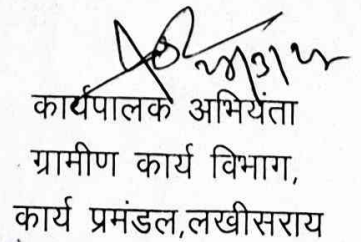 कार्यपालक अभियंता
ग्रामीण कार्य विभाग,
कार्य प्रमंडल,लखीसराय